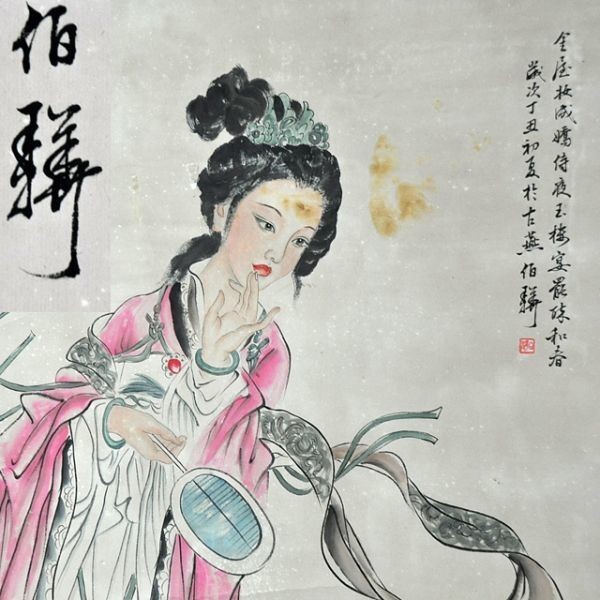 金屋妆成嬌侍夜玉楼宴罷醉和春
歲次丁丑初夏於古燕伯驊
伯
驊